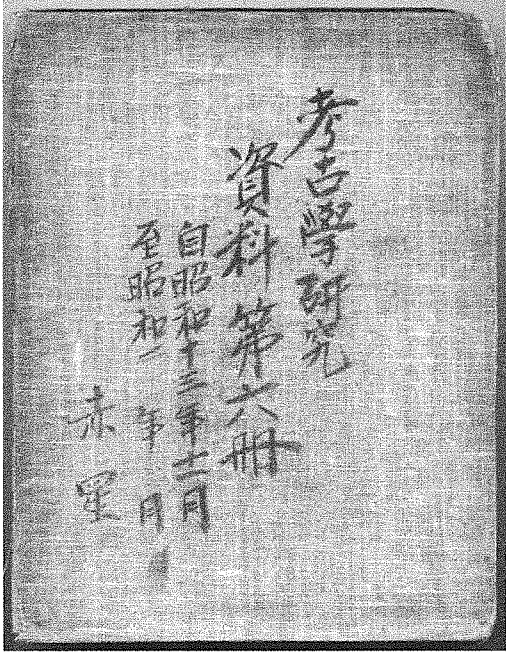 考古學研究
資料第六冊
自昭和十三年十一月
至昭和一 年 月
赤星